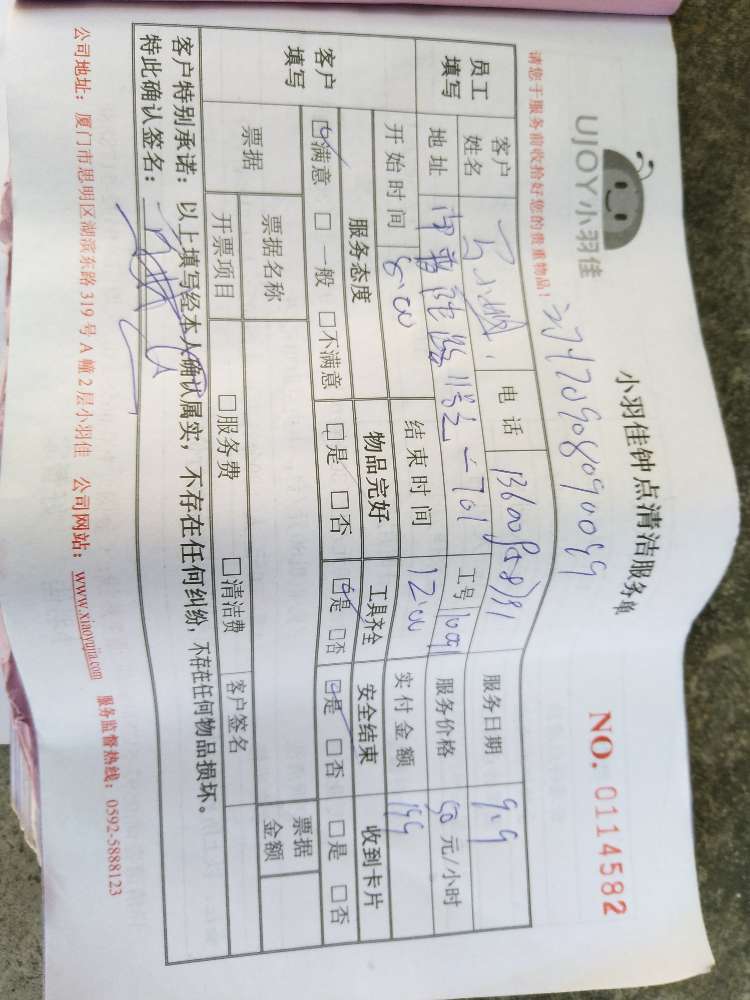 UJOY小羽佳
小羽佳钟点清洁服务单
NO. 0114582
请您于服务前收拾好您的贵重物品！
员工填写
客户姓名
电话
服务日期 9.9
地址
工号
服务价格 50 元/小时
开始时间 8:00 结束时间 12:00 实付金额 199
客户填写
服务态度 物品完好 工具齐全 安全结束 收到卡片
☑满意 □ 一般 □不满意 □是 □否 ☑是 □否 ☑是 □否 □是 □否
票据 票据名称 票据金额
开票项目 □服务费 □清洁费 客户签名
客户特别承诺：以上填写经本人确认属实，不存在任何纠纷，不存在任何物品损坏。
特此确认签名：
公司地址：厦门市思明区湖滨东路 319 号 A 幢 2 层小羽佳 公司网站：www.xiaoyujia.com 服务监督热线：0592-5888123